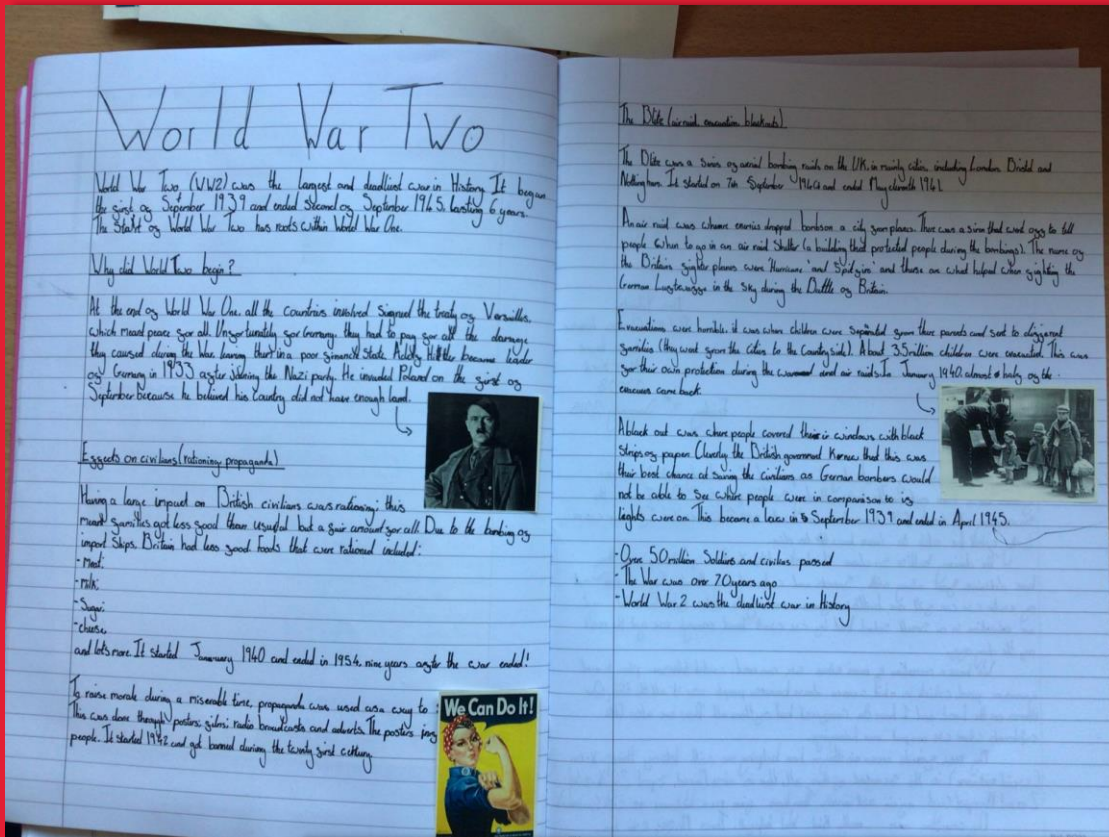 World War Two
World War Two, (WW2) was the largest and deadliest war in History. It began
the first of September 1939 and ended second of September 1945, lasting 6 years.
The Start of World War Two has roots within World War One.
Why did World Two begin?
At the end of World War One, all the countries involved signed the treaty of Versailles,
which meant peace for all. Unfortunately for Germany, they had to pay for all the damage
they caused during the War leaving them in a poor financial State. Adolf Hitler became leader
of Germany in 1933 after joining the Nazi party. He invaded Poland on the first of
September because he believed his Country did not have enough land.
Effects on civilians (rationing, propaganda)
Having a large impact on British civilians was rationing; this
meant families got less food than but a fair amount for all. Due to the bombing of
import Ships, Britain had less food. Foods that were rationed included:
- Meat,
- Milk
- Sugar,
- cheese,
and lots more. It started January 1940 and ended in 1954, nine years after the war ended!
To raise morale during a miserable time, propaganda was used as a way to
This was done through posters, films, radio broadcasts and adverts. The posters
people. It started 1942 and got banned during the twenty first century
We Can Do It!
The Blitz (air raid, evacuation, blackouts)
The Blitz was a series of aerial bombing raids on the UK, in mainly cities, including London, Bristol and
Nottingham. It started on 7th September 1940 and ended May eleventh 1941.
An air raid was where enemies dropped bombs on a city from planes. There was a siren that went off to tell
people when to go in an air raid Shelter (a building that protected people during the bombings). The name of
the Britain fighter planes were 'Hurricane' and Spitfire' and these are what helped when fighting the
German in the Sky during the Battle of Britain.
Evacuations were horrible. it was when children were separated from there parents and sent to different
families (they went from the cities to the Countryside). About 3.5 million children were evacuated. This was
for their own protection during the and air raids. In January 1940, almost half of the
evacuees came back.
A black out was where people covered their windows with black
Strips of paper. Cleverly, the British government Knew that this was
their best chance at saving the civilians as German bombers would
not be able to see where people were in comparison to if
lights were on. This became a law in September 1939 and ended in April 1945.
- Over 50 million Soldiers and civilians passed
- The War was over 70 years ago
- World War 2 was the deadliest war in History